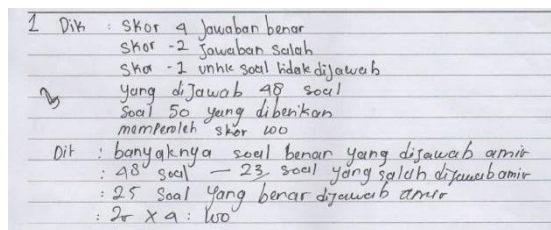 1 Dik : Skor 4 Jawaban benar
Skor -2 Jawaban Salah
Skor -1 untuk soal tidak dijawab
yang diJawab 48 soal
Soal 50 yang diberikan
memperoleh skor 100
Dit : banyaknya soal benar yang dijawab amir
: 48 soal - 23 soal yang salah dijawab amir
: 25 Soal yang benar dijawab amir
: 25 X 4 : 100